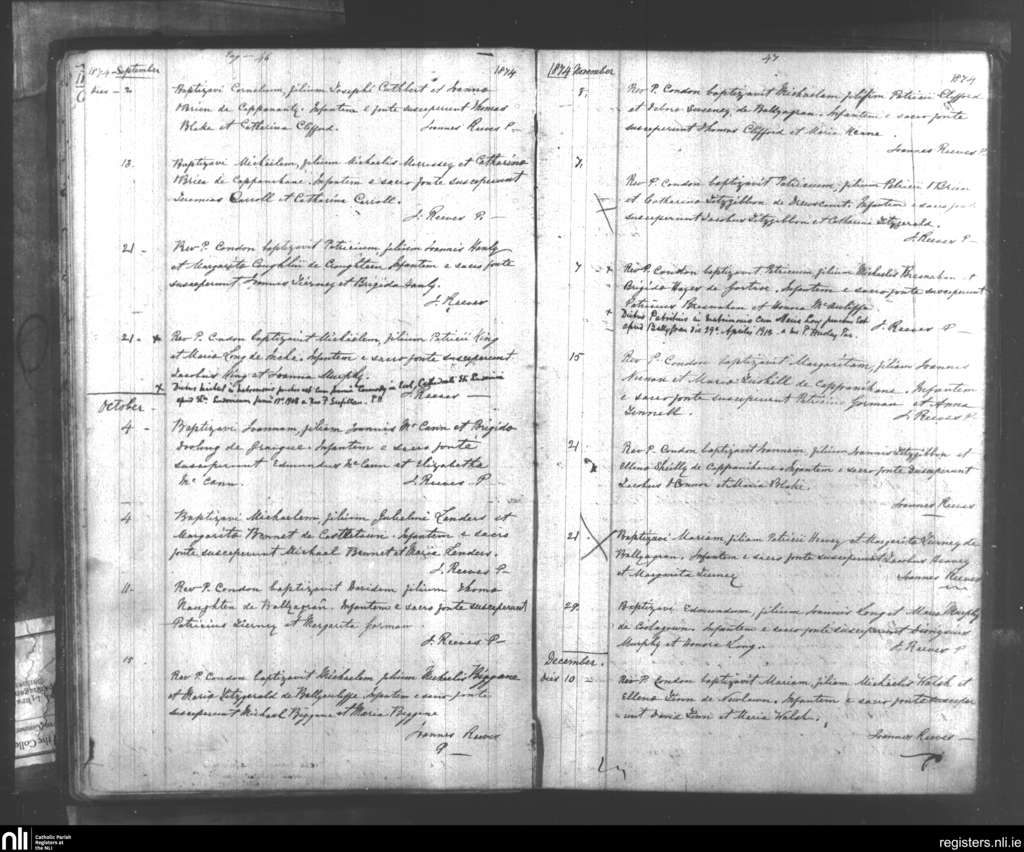 Pag - 46
1874 - September
1874
dies - 2
Baptizavi Cornelium, filium Josephi Cuthbert et Joanna
OBrien de Cappanaity. Infantem e fonte susceperunt Thomas
Blake et Catherina Clifford.
Joannes Reeves P-
13.
Baptizavi Michaelem, filium Michaelis Morrissey et Catharina
OBrien de Cappanihane. Infantem e sacro fonte susceperunt
Jeremias Carroll et Catharina Carroll.
J. Reeves P-
21 -
Rev P. Condon baptizavit Patricium, filium Joannis Hanly
et Margarita Coughlin de Creughteen Infantem e sacro fonte
susceperunt Joannes Tierney et Brigida Hanly.
J. Reeves
21 - x
Rev P. Condon baptizavit Michaelem, filium Patricii King
et Maria Long de Infantem e sacro fonte susceperunt
Jacobus King et Joanna Murphy.
x Dictus Michael in matrimonio junctus est cum in Eccl. Cathedrali
J. Reeves -
October.
4 -
Baptizavi Joannam, filiam Joannis McCann et Brigida
Dooling de Grangue. Infantem e sacro fonte
susceperunt Edmundus McCann et Elizabetha
McCann.
J. Reeves P-
4
Baptizavi Michaelem, filium Gulielmi Landers et
Margarita Bennet de Castletown. Infantem e sacro
fonte susceperunt Michael Bennet et Maria Landers.
J. Reeves P-
11 -
Rev P. Condon baptizavit Davidem filium Thoma
Naughten de Ballyagran. Infantem e sacro fonte susceperunt
Patricius Tierney et Margarita Gorman.
J. Reeves P-
15
Rev P. Condon baptizavit Michaelem filium Michaelis Biggane
et Maria Fitzgerald de Ballycaliffe Infantem e sacro fonte
susceperunt Michael Biggane et Maria Biggane
Joannes Reeves
P -
47
1874 November
1874
Rev P. Condon baptizavit Michaelem filium Patricii Clifford
et Debora Sweeney de Ballyagran. Infantem e sacro fonte
susceperunt Thomas Clifford et Maria Keane.
Joannes Reeves P.
7.
Rev P. Condon baptizavit Patricium, filium Patricii OBrien
et Catharina Fitzgibbon de Drewscourt. Infantem e sacro fonte
susceperunt Jacobus Fitzgibbon et Catharina Fitzgerald.
J. Reeves P-
7 x
Rev P. Condon baptizavit Patricium filium Michaelis Bresnahan et
Brigida Hayes de Gortroe. Infantem e sacro fonte susceperunt
Patricius Bresnahan et Honora McAuliffe
x Dictus Patritius in matrimonio cum Maria junctus est
apud die 29° Aprilis 1913
J. Reeves P-
15
Rev P. Condon baptizavit Margaritam, filiam Joannis
Noonan et Maria de Cappanihane. Infantem
e sacro fonte susceperunt Patricius Gorman et Anna
J. Reeves P.
21
Rev P. Condon baptizavit Joannem, filium Joannis Fitzgibbon et
Ellena Sheilly de Cappanihane. Infantem e sacro fonte susceperunt
Jacobus OConnor et Maria Blake.
Joannes Reeves
21
Baptizavi Mariam, filiam Patricii Heney et Margarita Tierney de
Ballyagran. Infantem e sacro fonte susceperunt Jacobus Heaney
et Margarita Tierney
Joannes Reeves
29.
Baptizavi Edmundum, filium Joannis Long et Maria Murphy
de Coolagown. Infantem e sacro fonte susceperunt Dionysius
Murphy et Honora Long.
J. Reeves P
December.
dies 10 -
Rev P. Condon baptizavit Mariam, filiam Michaelis Walsh et
Ellena de Newtown. Infantem e sacro fonte suscepe
-runt David et Maria Walsh.
Joannes Reeves -
P
nli
Catholic Parish
Registers at
the NLI
registers.nli.ie